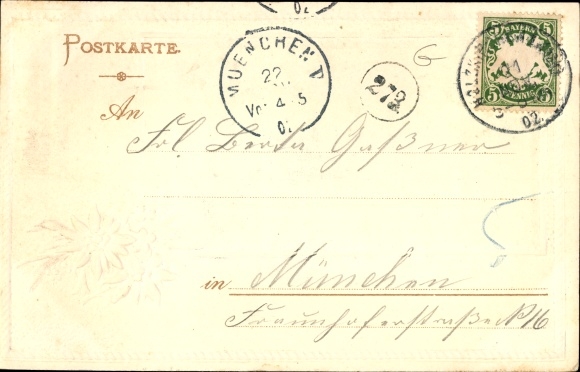 POSTKARTE.
MUENCHEN
22
Vor 4-5
02
272
G
BAYERN
5 5
PFENNIG
02
An
Frl Berta Gaßner
in München
Fraunhoferstraße No 16